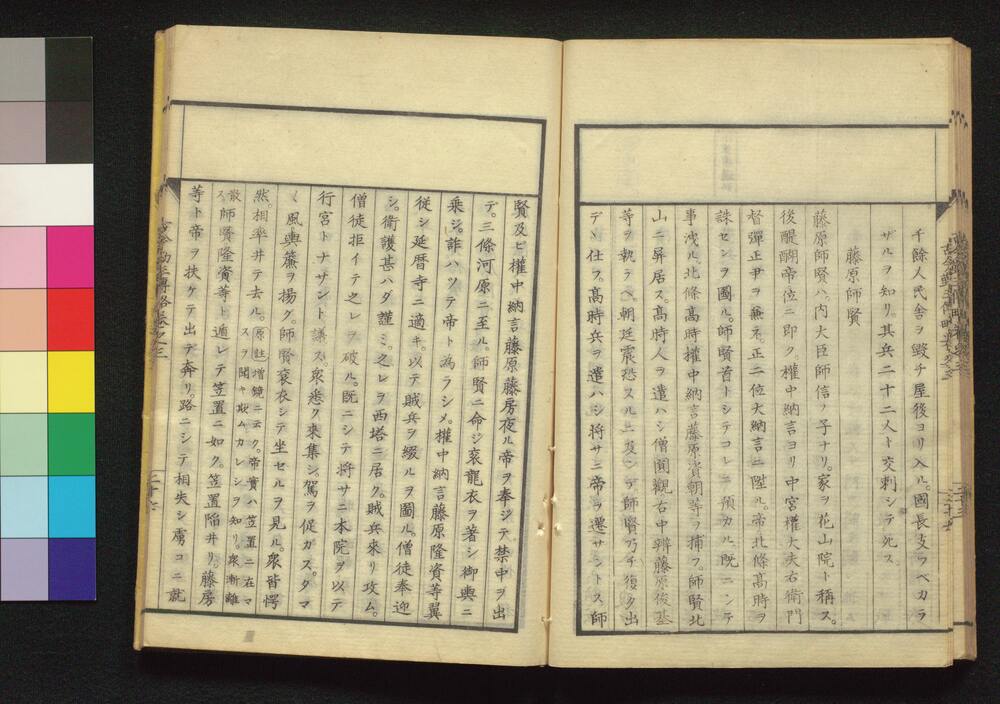 千餘人民舍ヲ毀チ屋後ヨリ入ル。國長支フベカラ
ザルヲ知リ。其兵二十二人ト交刺シテ死ス
藤原師賢
藤原師賢ハ。内大臣師信ノ子ナリ。家ヲ花山院ト稱ス。
後醍醐帝位ニ即ク。權中納言ヨリ中宮權大夫右衛門
督彈正尹ヲ兼ネ。正二位大納言ニ陞ル。帝北條高時ヲ
誅センヲ圖ル。師賢首トシテコレニ預カル。既ニシテ
事洩ル。北條高時權中納言藤原資朝等ヲ捕フ。師賢北
山ニ屏居ス。高時人ヲ遣ハシ僧圓觀右中辨藤原俊基
等ヲ執ラヘ。朝廷震恐スルニ及ンデ師賢乃チ復タ出
デヽ仕フ。高時兵ヲ遣ハシ將サニ帝ヲ遷サントス師
賢及ビ權中納言藤原藤房夜ル帝ヲ奉ジテ。禁中ヲ出
デ。三條河原ニ至ル。師賢ニ命ジ袞龍衣ヲ著シ御輿ニ
乘ジ。詐ハツテ帝ト為ラシメ。權中納言藤原隆資等翼
從シ延暦寺ニ適キ。以テ賊兵ヲ綴ルヲ圖ル。僧徒奉迎
シ。衛護甚ハダ謹ミ。之レヲ西塔ニ居ク。賊兵來リ攻ム。
僧徒拒イテ之レヲ破ル。既ニシテ將サニ本院ヲ以テ
行宮トナサント議ス。衆悉ク來集シ。駕ヲ促ガス。タマ
〻風輿簾ヲ揚グ。師賢袞衣シテ坐セルヲ見ル。衆皆愕
然。相率井テ去ル。原註增鏡ニ云ク。帝實ハ笠置ニ在マスヲ聞キ欺ムカレシヲ知リ。衆漸離
散ス師賢隆資等ト遁レテ笠置ニ如ク。笠置陥井リ。藤房
等ト帝ヲ扶ケテ出デ奔リ。路ニシテ相失シ虜コニ就